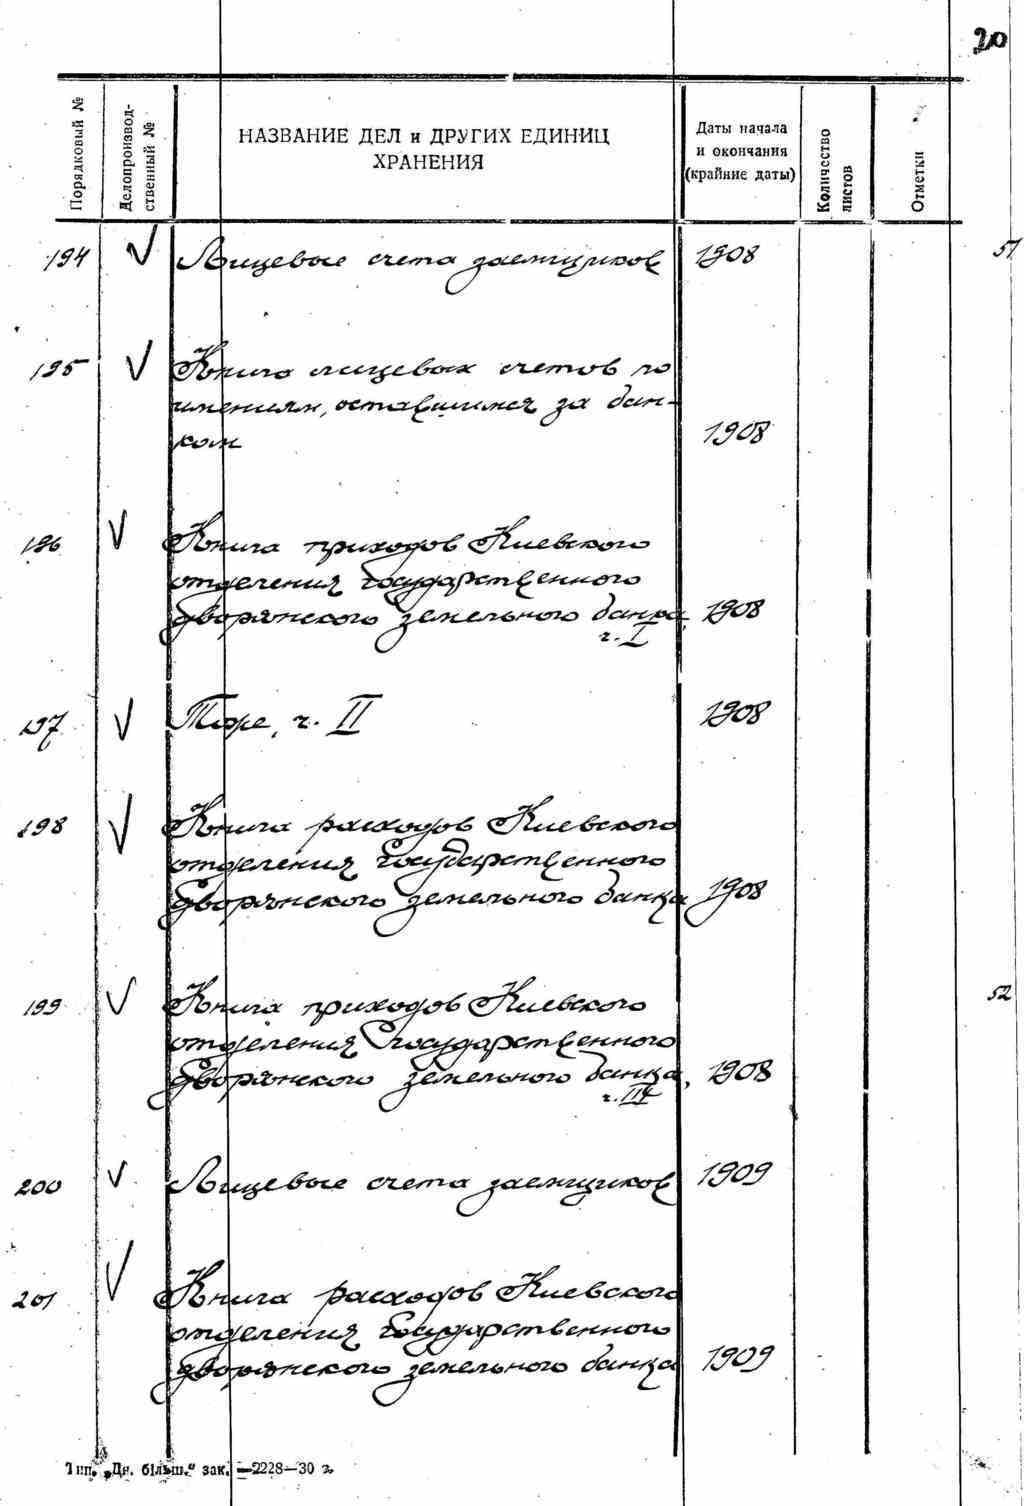 20
Порядковый №
Делопроизвод-
ственный №
НАЗВАНИЕ ДЕЛ и ДРУГИХ ЕДИНИЦ
ХРАНЕНИЯ
Даты начала
и окончания
(крайние даты)
Количество
листов
Отметки
194 V Лицевые счета заемщиков 1908 51
195 V Книга лицевых счетов по
имениям, оставшимся за бан-
ком 1908
196 V Книга приходов Киевского
отделения Государственного
дворянского земельного банка, 1908
ч. I
197 V Тоже, ч. II 1908
198 V Книга расходов Киевского
отделения Государственного
дворянского земельного банка 1908
199 V Книга приходов Киевского 52
отделения Государственного
дворянского земельного банка, 1908
ч. III
200 V Лицевые счета заемщиков 1909
201 V Книга расходов Киевского
отделения Государственного
дворянского земельного банка 1909
Тип. „Дн. більш." зак. —2228—30 г.